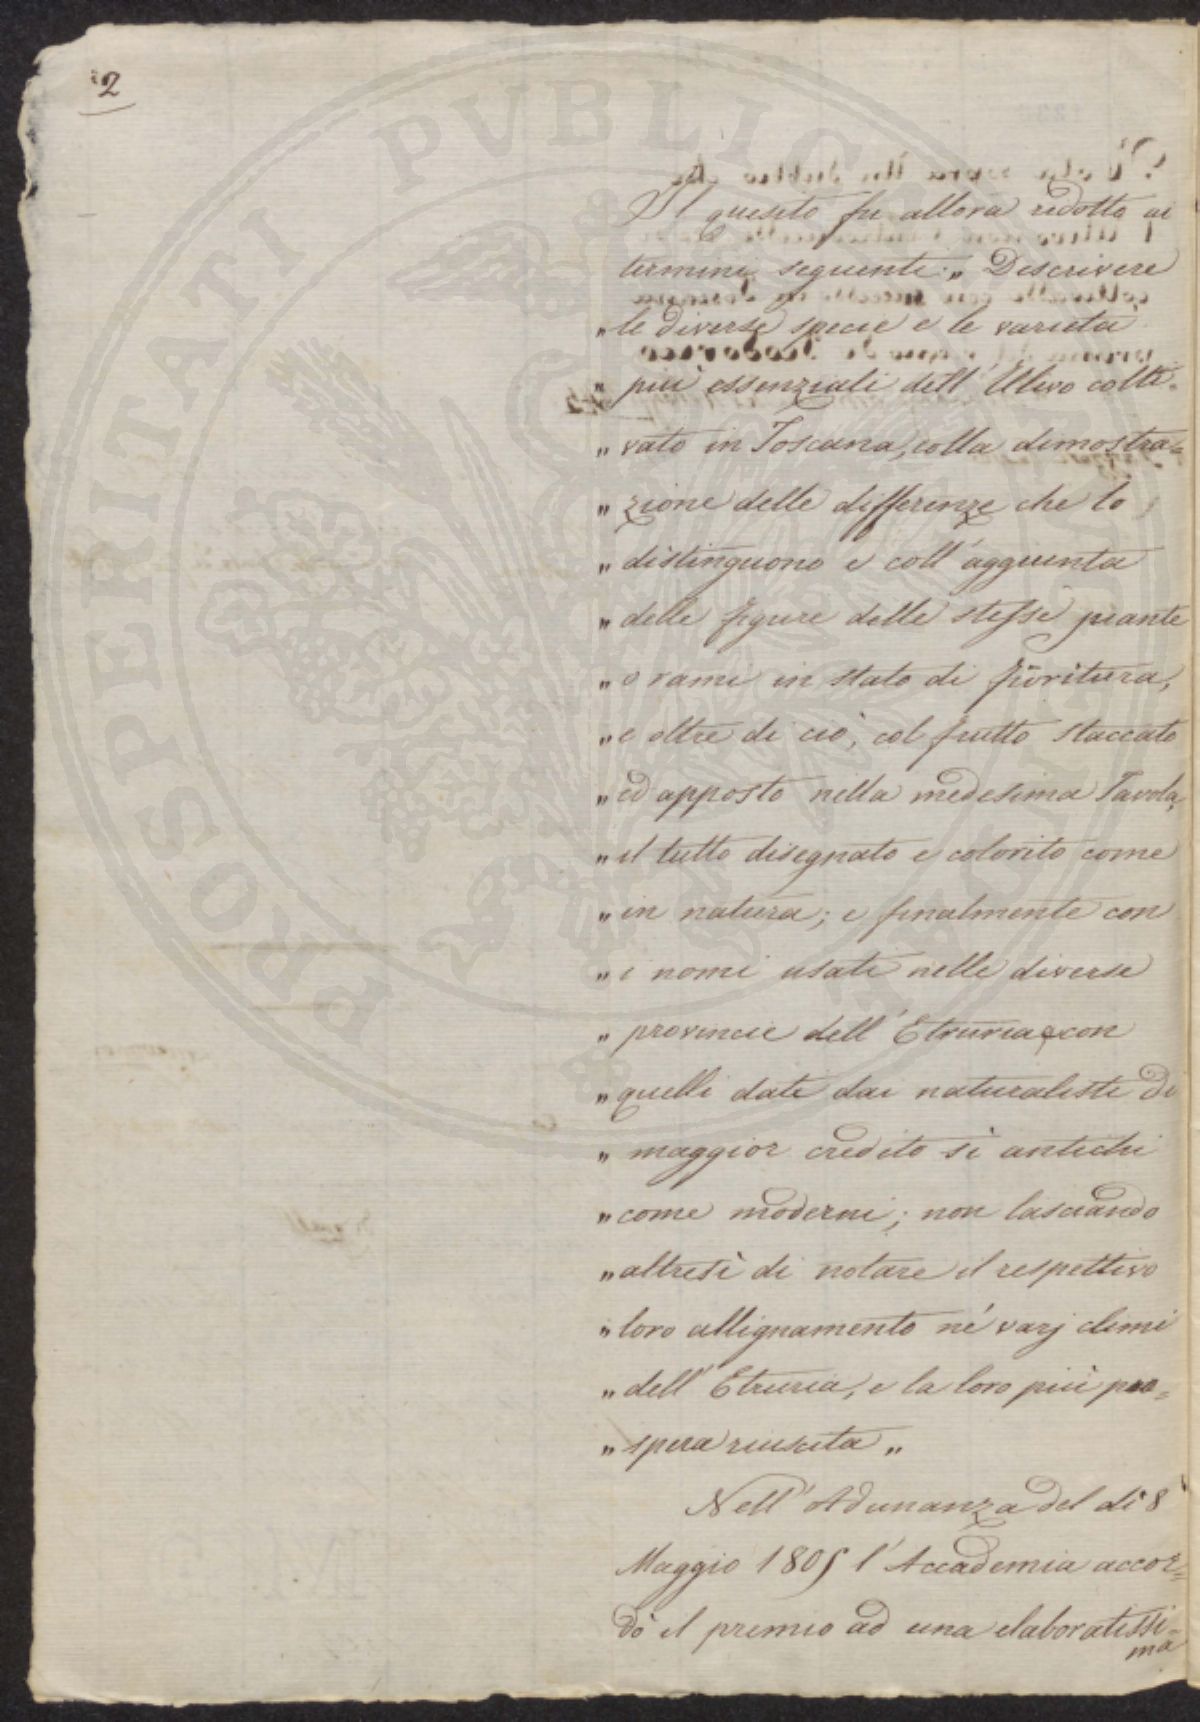 2
Il quesito fu allora ridotto ai
termini seguenti: „ Descrivere
„ le diverse specie e le varietà
„ più essenziali dell' Ulivo colti=
„ vato in Toscana, colla dimostra=
„ zione delle differenze che lo
„ distinguono e coll' aggiunta
„ delle figure delle stesse piante
„ o rami in stato di fioritura,
„ e oltre di ciò, col frutto staccato
„ ed apposto nella medesima Tavola,
„ il tutto disegnato e colorito come
„ in natura; e finalmente con
„ i nomi usati nelle diverse
„ provincie dell' Etruria e con
„ quelli dati dai naturalisti di
„ maggior credito sì antichi
„ come moderni; non lasciando
„ altresì di notare il respettivo
„ loro allignamento né varj climi
„ dell' Etruria, e la loro più pro=
„ spera riuscita „
Nell' Adunanza del dì 8
Maggio 1805 l' Accademia accor=
dò il premio ad una elaboratissi=
ma
PROSPERITATI PVBLICAE